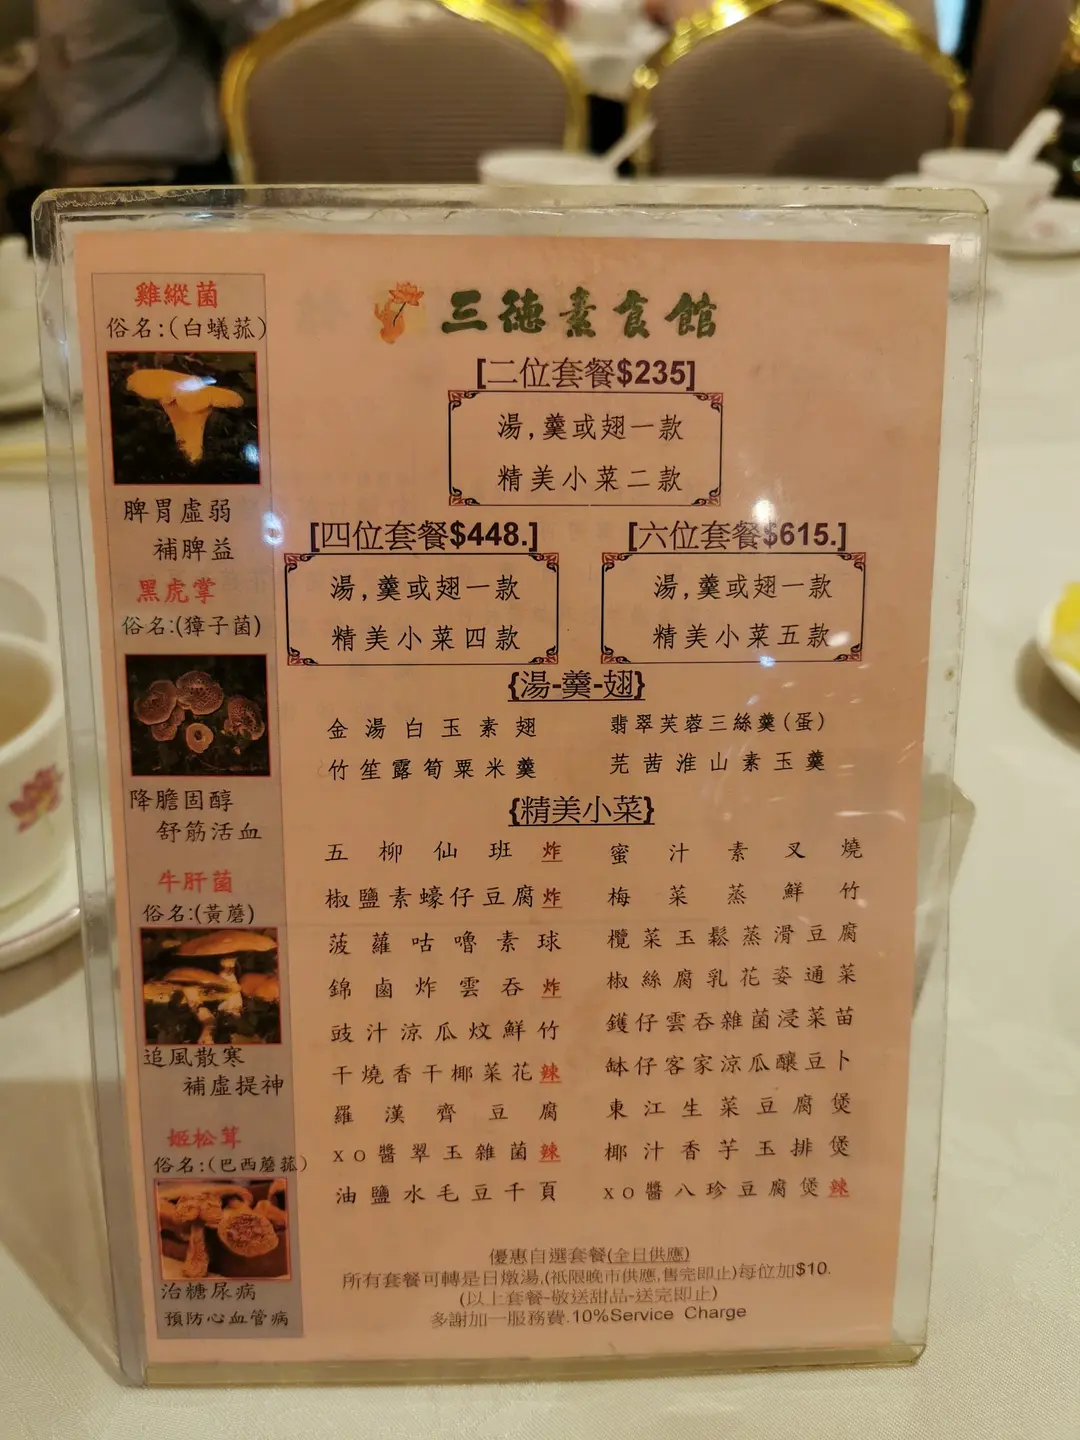 雞縱菌
俗名:(白蟻菰)
脾胃虛弱
補脾益
黑虎掌
俗名:(獐子菌)
降膽固醇
舒筋活血
牛肝菌
俗名:(黃蘑)
追風散寒
補虛提神
姬松茸
俗名:(巴西蘑菰)
治糖尿病
預防心血管病
三德素食館
[二位套餐$235]
湯,羹或翅一款
精美小菜二款
[四位套餐$448.]
湯,羹或翅一款
精美小菜四款
[六位套餐$615.]
湯,羹或翅一款
精美小菜五款
{湯-羹-翅}
金湯白玉素翅
翡翠芙蓉三絲羹(蛋)
竹笙露筍粟米羹
芫茜淮山素玉羹
{精美小菜}
五柳仙班炸
蜜汁素叉燒
椒鹽素蠔仔豆腐炸
梅菜蒸鮮竹
菠蘿咕嚕素球
欖菜玉鬆蒸滑豆腐
錦鹵炸雲吞炸
椒絲腐乳花姿通菜
豉汁涼瓜炆鮮竹
鑊仔雲吞雜菌浸菜苗
干燒香干椰菜花辣
缽仔客家涼瓜釀豆卜
羅漢齊豆腐
東江生菜豆腐煲
xo醬翠玉雜菌辣
椰汁香芋玉排煲
油鹽水毛豆千頁
xo醬八珍豆腐煲辣
優惠自選套餐(全日供應)
所有套餐可轉是日燉湯,(祇限晚市供應,售完即止)每位加$10.
(以上套餐-敬送甜品-送完即止)
多謝加一服務費.10%Service Charge